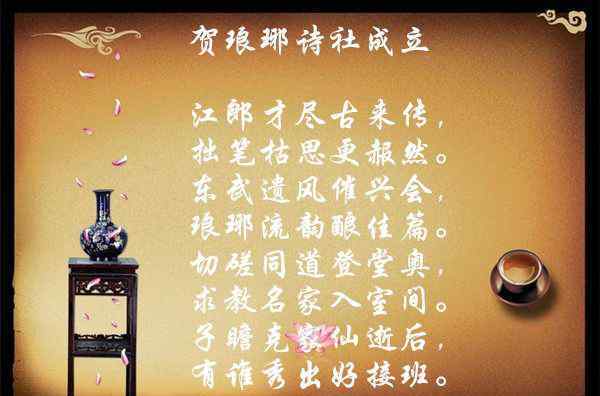 贺琅琊诗社成立
江郎才尽古来传，
拙笔枯思更赧然。
东武遗风催兴会，
琅琊流韵酿佳篇。
切磋同道登堂奥，
求教名家入室间。
子瞻克顒仙逝后，
有谁秀出好接班。